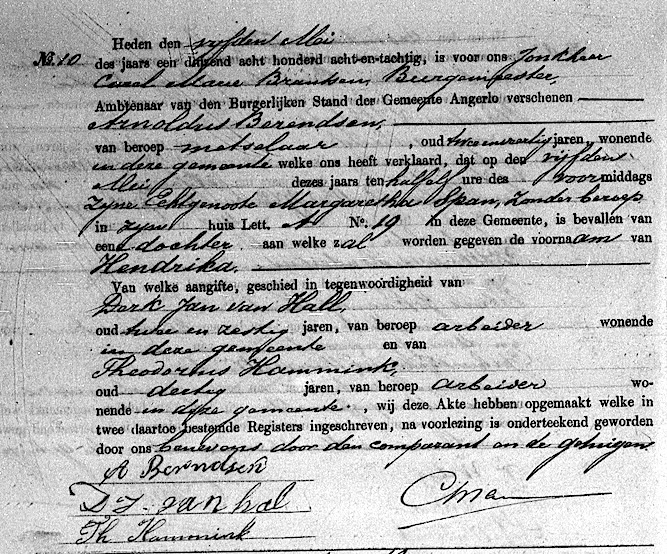 Heden den vijfden Mei
No. 10
des jaars een duizend acht honderd acht-en-tachtig, is voor ons Jonkheer
Carel Marie Brantsen, Burgemeester,
Ambtenaar van den Burgerlijken Stand der Gemeente Angerlo verschenen
Arnoldus Berendsen,
van beroep metselaar, oud twee en veertig jaren, wonende
in deze gemeente welke ons heeft verklaard, dat op den vijfden
Mei dezes jaars ten half elf ure des voormiddags
zijne Echtgenoote Margaretha Span, zonder beroep
in zijn huis Lett. A No. 19 in deze Gemeente, is bevallen van
eene dochter aan welke zal worden gegeven de voornaam van
Hendrika.
Van welke aangifte, geschied in tegenwoordigheid van
Derk Jan van Hall,
oud twee en zestig jaren, van beroep arbeider wonende
in deze gemeente en van
Theodorus Hammink,
oud dertig jaren, van beroep arbeider wo-
nende in deze gemeente, wij deze Akte hebben opgemaakt welke in
twee daartoe bestemde Registers ingeschreven, na voorlezing is onderteekend geworden
door ons benevens door den comparant en de getuigen.
A Berndsen
D J. van hal
Th Hammink